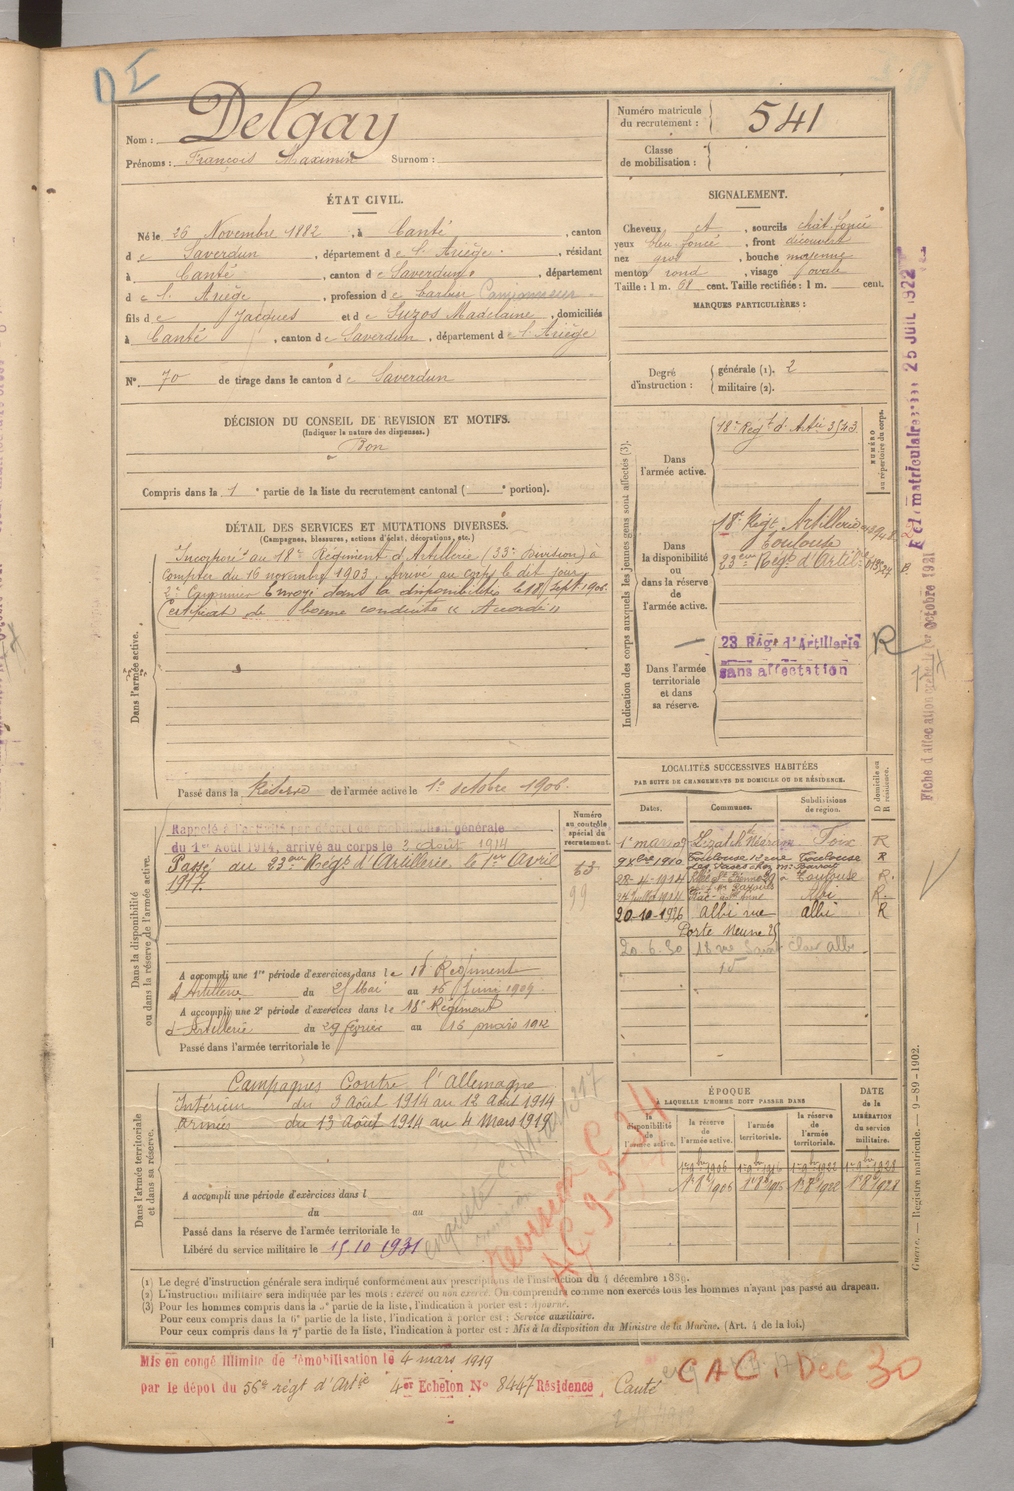 D I
Nom : Delgay
Prénoms : François Maximin Surnom :
Numéro matricule du recrutement : 541
Classe de mobilisation :
ÉTAT CIVIL.
Né le 26 Novembre 1882, à Canté, canton
de Saverdun, département de l'Ariège, résidant
à Canté, canton de Saverdun, département
de l'Ariège, profession de barbier Camionneur
fils de Jacques et de Suzos Madelaine, domiciliés
à Canté, canton de Saverdun, département de l'Ariège
N° 70 de tirage dans le canton de Saverdun
SIGNALEMENT.
Cheveux ct, sourcils chât. foncé
yeux bleu foncé, front découvert
nez gros, bouche moyenne
menton rond, visage ovale
Taille : 1 m. 68 cent. Taille rectifiée : 1 m. cent.
MARQUES PARTICULIÈRES :
Degré d'instruction : générale (1). 2
militaire (2).
DÉCISION DU CONSEIL DE REVISION ET MOTIFS.
(Indiquer la nature des dispenses.)
Bon
Compris dans la 1e partie de la liste du recrutement cantonal ( e portion).
DÉTAIL DES SERVICES ET MUTATIONS DIVERSES.
(Campagnes, blessures, actions d'éclat, décorations, etc.)
Dans l'armée active.
Incorporé au 18e Régiment d'Artillerie (33e Division) à
compter du 16 novembre 1903. Arrivé au corps le dit jour
2e Canonnier Envoyé dans la disponibilité le 18 Sept. 1906.
Certificat de bonne conduite « Accordé »
Passé dans la Réserve de l'armée active le 1er octobre 1906.
Indication des corps auxquels les jeunes gens sont affectés (3).
NUMÉRO au répertoire du corps.
Dans l'armée active.
18e Régt d'Artie 3543
Dans la disponibilité ou dans la réserve de l'armée active.
18e Régt Artillerie
Toulouse
23eme Régt d'Artie
Dans l'armée territoriale et dans sa réserve.
23 Rég. d'Artillerie
sans affectation
R
Fiche d'affectation
octobre 1921
matriculaire
25 JUIL 1922
Dans la disponibilité ou dans la réserve de l'armée active.
Numéro au contrôle spécial du recrutement.
Rappelé à l'activité par décret de mobilisation générale
du 1er Août 1914, arrivé au corps le 3 août 1914
Passé au 23eme Régt d'Artillerie le 1er Avril
1917.
63
99
A accompli une 1re période d'exercices dans le 18 Régiment
d'Artillerie du 25 Mai au 16 Juin 1909.
A accompli une 2e période d'exercices dans le 18e Régiment
d'Artillerie du 29 février au 16 mars 1912
Passé dans l'armée territoriale le
LOCALITÉS SUCCESSIVES HABITÉES
PAR SUITE DE CHANGEMENTS DE DOMICILE OU DE RÉSIDENCE.
Dates. Communes. Subdivisions de région. D domicile ou R résidence.
Foix R
1910 Toulouse Toulouse R
28-4-1914 Toulouse R.
Albi R.
20-10-1926 Albi rue albi R
Porte Neuve 25
20.6.30
Dans l'armée territoriale et dans sa réserve.
Campagnes Contre l'Allemagne
Intérieur du 3 Août 1914 au 12 Août 1914
armées du 13 Août 1914 au 4 Mars 1919
A accompli une période d'exercices dans l
du au
Passé dans la réserve de l'armée territoriale le
Libéré du service militaire le 15.10.1931
ÉPOQUE
À LAQUELLE L'HOMME DOIT PASSER DANS
la disponibilité de l'armée active. la réserve de l'armée active. l'armée territoriale. la réserve de l'armée territoriale.
DATE de la LIBÉRATION du service militaire.
1er 9bre 1906 1er 9bre 1916 1er 9bre 1922 1er 9bre 1928
1er 8bre 1906 1er 8bre 1916 1er 8bre 1922 1er 8bre 1928
révision
A C 9-3-34
Guerre. — Registre matricule. — 9-89-1902.
(1) Le degré d'instruction générale sera indiqué conformément aux prescriptions de l'instruction du 4 décembre 1889.
(2) L'instruction militaire sera indiquée par les mots : exercé ou non exercé. On comprendra comme non exercés tous les hommes n'ayant pas passé au drapeau.
(3) Pour les hommes compris dans la 5e partie de la liste, l'indication à porter est : Ajourné.
Pour ceux compris dans la 6e partie de la liste, l'indication à porter est : Service auxiliaire.
Pour ceux compris dans la 7e partie de la liste, l'indication à porter est : Mis à la disposition du Ministre de la Marine. (Art. 4 de la loi.)
Mis en congé illimité de démobilisation le 4 mars 1919
par le dépôt du 56e régt d'Artie 4er Echelon N° 8447 Résidence Canté
CAC. Dec 30